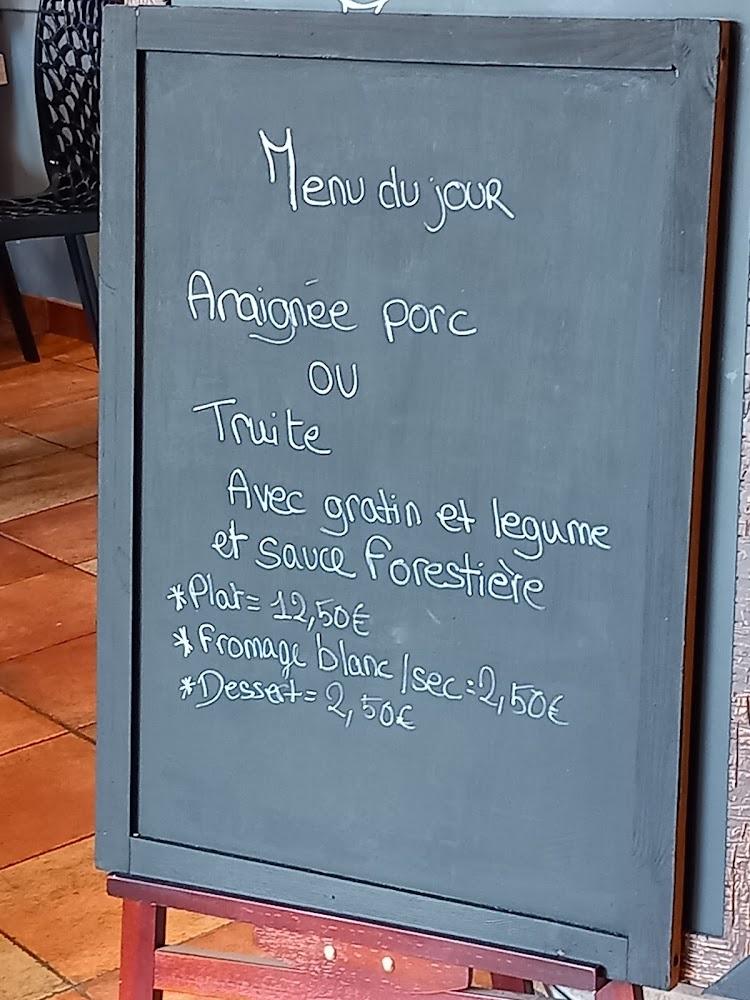 Menu du jour
Araignée porc
ou
Truite
Avec gratin et legume
et sauce forestière
*Plat= 12,50€
*Fromage blanc/sec=2,50€
*Dessert= 2,50€